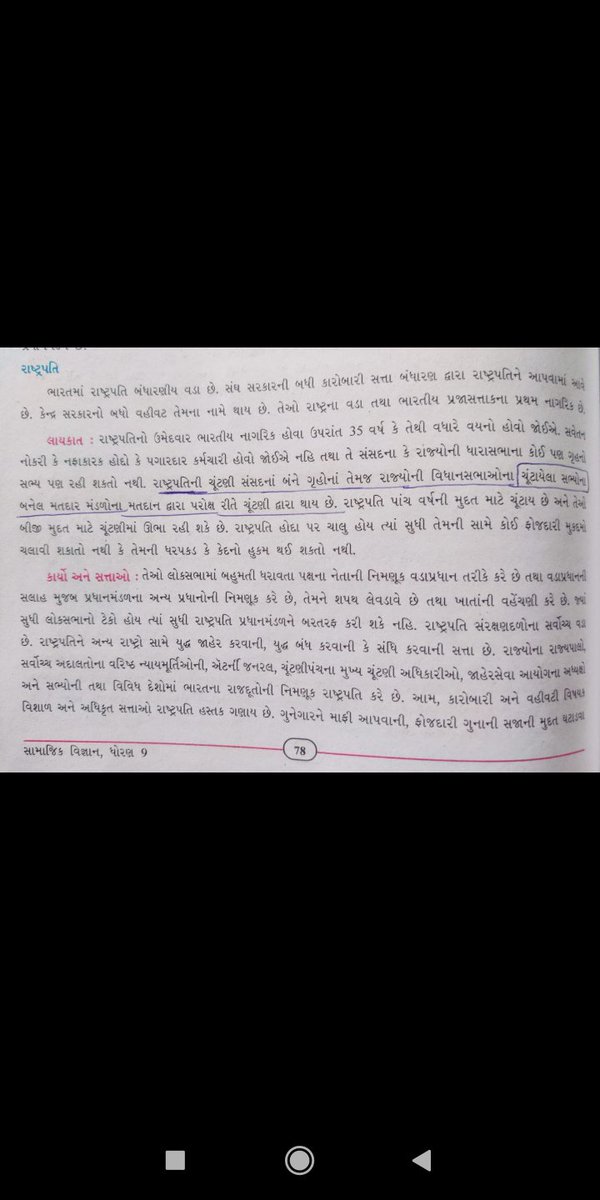 રાષ્ટ્રપતિ
ભારતમાં રાષ્ટ્રપતિ બંધારણીય વડા છે. સંઘ સરકારની બધી કારોબારી સત્તા બંધારણ દ્વારા રાષ્ટ્રપતિને આપવામાં આવે
છે. કેન્દ્ર સરકારનો બધો વહીવટ તેમના નામે થાય છે. તેઓ રાષ્ટ્રના વડા તથા ભારતીય પ્રજાસત્તાકના પ્રથમ નાગરિક છે.
લાયકાત : રાષ્ટ્રપતિનો ઉમેદવાર ભારતીય નાગરિક હોવા ઉપરાંત 35 વર્ષ કે તેથી વધારે વયનો હોવો જોઈએ. સવેતન
નોકરી કે નફાકારક હોદો કે પગારદાર કર્મચારી હોવો જોઈએ નહિ તથા તે સંસદના કે રાજ્યોની ધારાસભાના કોઈ પણ ગૃહનો
સભ્ય પણ રહી શકતો નથી. રાષ્ટ્રપતિની ચૂંટણી સંસદનાં બંને ગૃહોનાં તેમજ રાજ્યોની વિધાનસભાઓના ચૂંટાયેલા સભ્યોના
બનેલ મતદાર મંડળોના મતદાન દ્વારા પરોક્ષ રીતે ચૂંટણી દ્વારા થાય છે. રાષ્ટ્રપતિ પાંચ વર્ષની મુદત માટે ચૂંટાય છે અને તેઓ
બીજી મુદત માટે ચૂંટણીમાં ઊભા રહી શકે છે. રાષ્ટ્રપતિ હોદા પર ચાલુ હોય ત્યાં સુધી તેમની સામે કોઈ ફોજદારી મુકદમો
ચલાવી શકાતો નથી કે તેમની ધરપકડ કે કેદનો હુકમ થઈ શકતો નથી.
કાર્યો અને સત્તાઓ : તેઓ લોકસભામાં બહુમતી ધરાવતા પક્ષના નેતાની નિમણૂક વડાપ્રધાન તરીકે કરે છે તથા વડાપ્રધાનની
સલાહ મુજબ પ્રધાનમંડળના અન્ય પ્રધાનોની નિમણૂક કરે છે, તેમને શપથ લેવડાવે છે તથા ખાતાંની વહેંચણી કરે છે. જ્યાં
સુધી લોકસભાનો ટેકો હોય ત્યાં સુધી રાષ્ટ્રપતિ પ્રધાનમંડળને બરતરફ કરી શકે નહિ. રાષ્ટ્રપતિ સંરક્ષણદળોના સર્વોચ્ચ વડા
છે. રાષ્ટ્રપતિને અન્ય રાષ્ટ્રો સામે યુદ્ધ જાહેર કરવાની, યુદ્ધ બંધ કરવાની કે સંધિ કરવાની સત્તા છે. રાજ્યોના રાજ્યપાલો,
સર્વોચ્ચ અદાલતોના વરિષ્ઠ ન્યાયમૂર્તિઓની, એટર્ની જનરલ, ચૂંટણીપંચના મુખ્ય ચૂંટણી અધિકારીઓ, જાહેરસેવા આયોગના અધ્યક્ષો
અને સભ્યોની તથા વિવિધ દેશોમાં ભારતના રાજદૂતોની નિમણૂક રાષ્ટ્રપતિ કરે છે. આમ, કારોબારી અને વહીવટી વિષયક
વિશાળ અને અધિકૃત સત્તાઓ રાષ્ટ્રપતિ હસ્તક ગણાય છે. ગુનેગારને માફી આપવાની, ફોજદારી ગુનાની સજાની મુદત ઘટાડવા
સામાજિક વિજ્ઞાન, ધોરણ 9
78